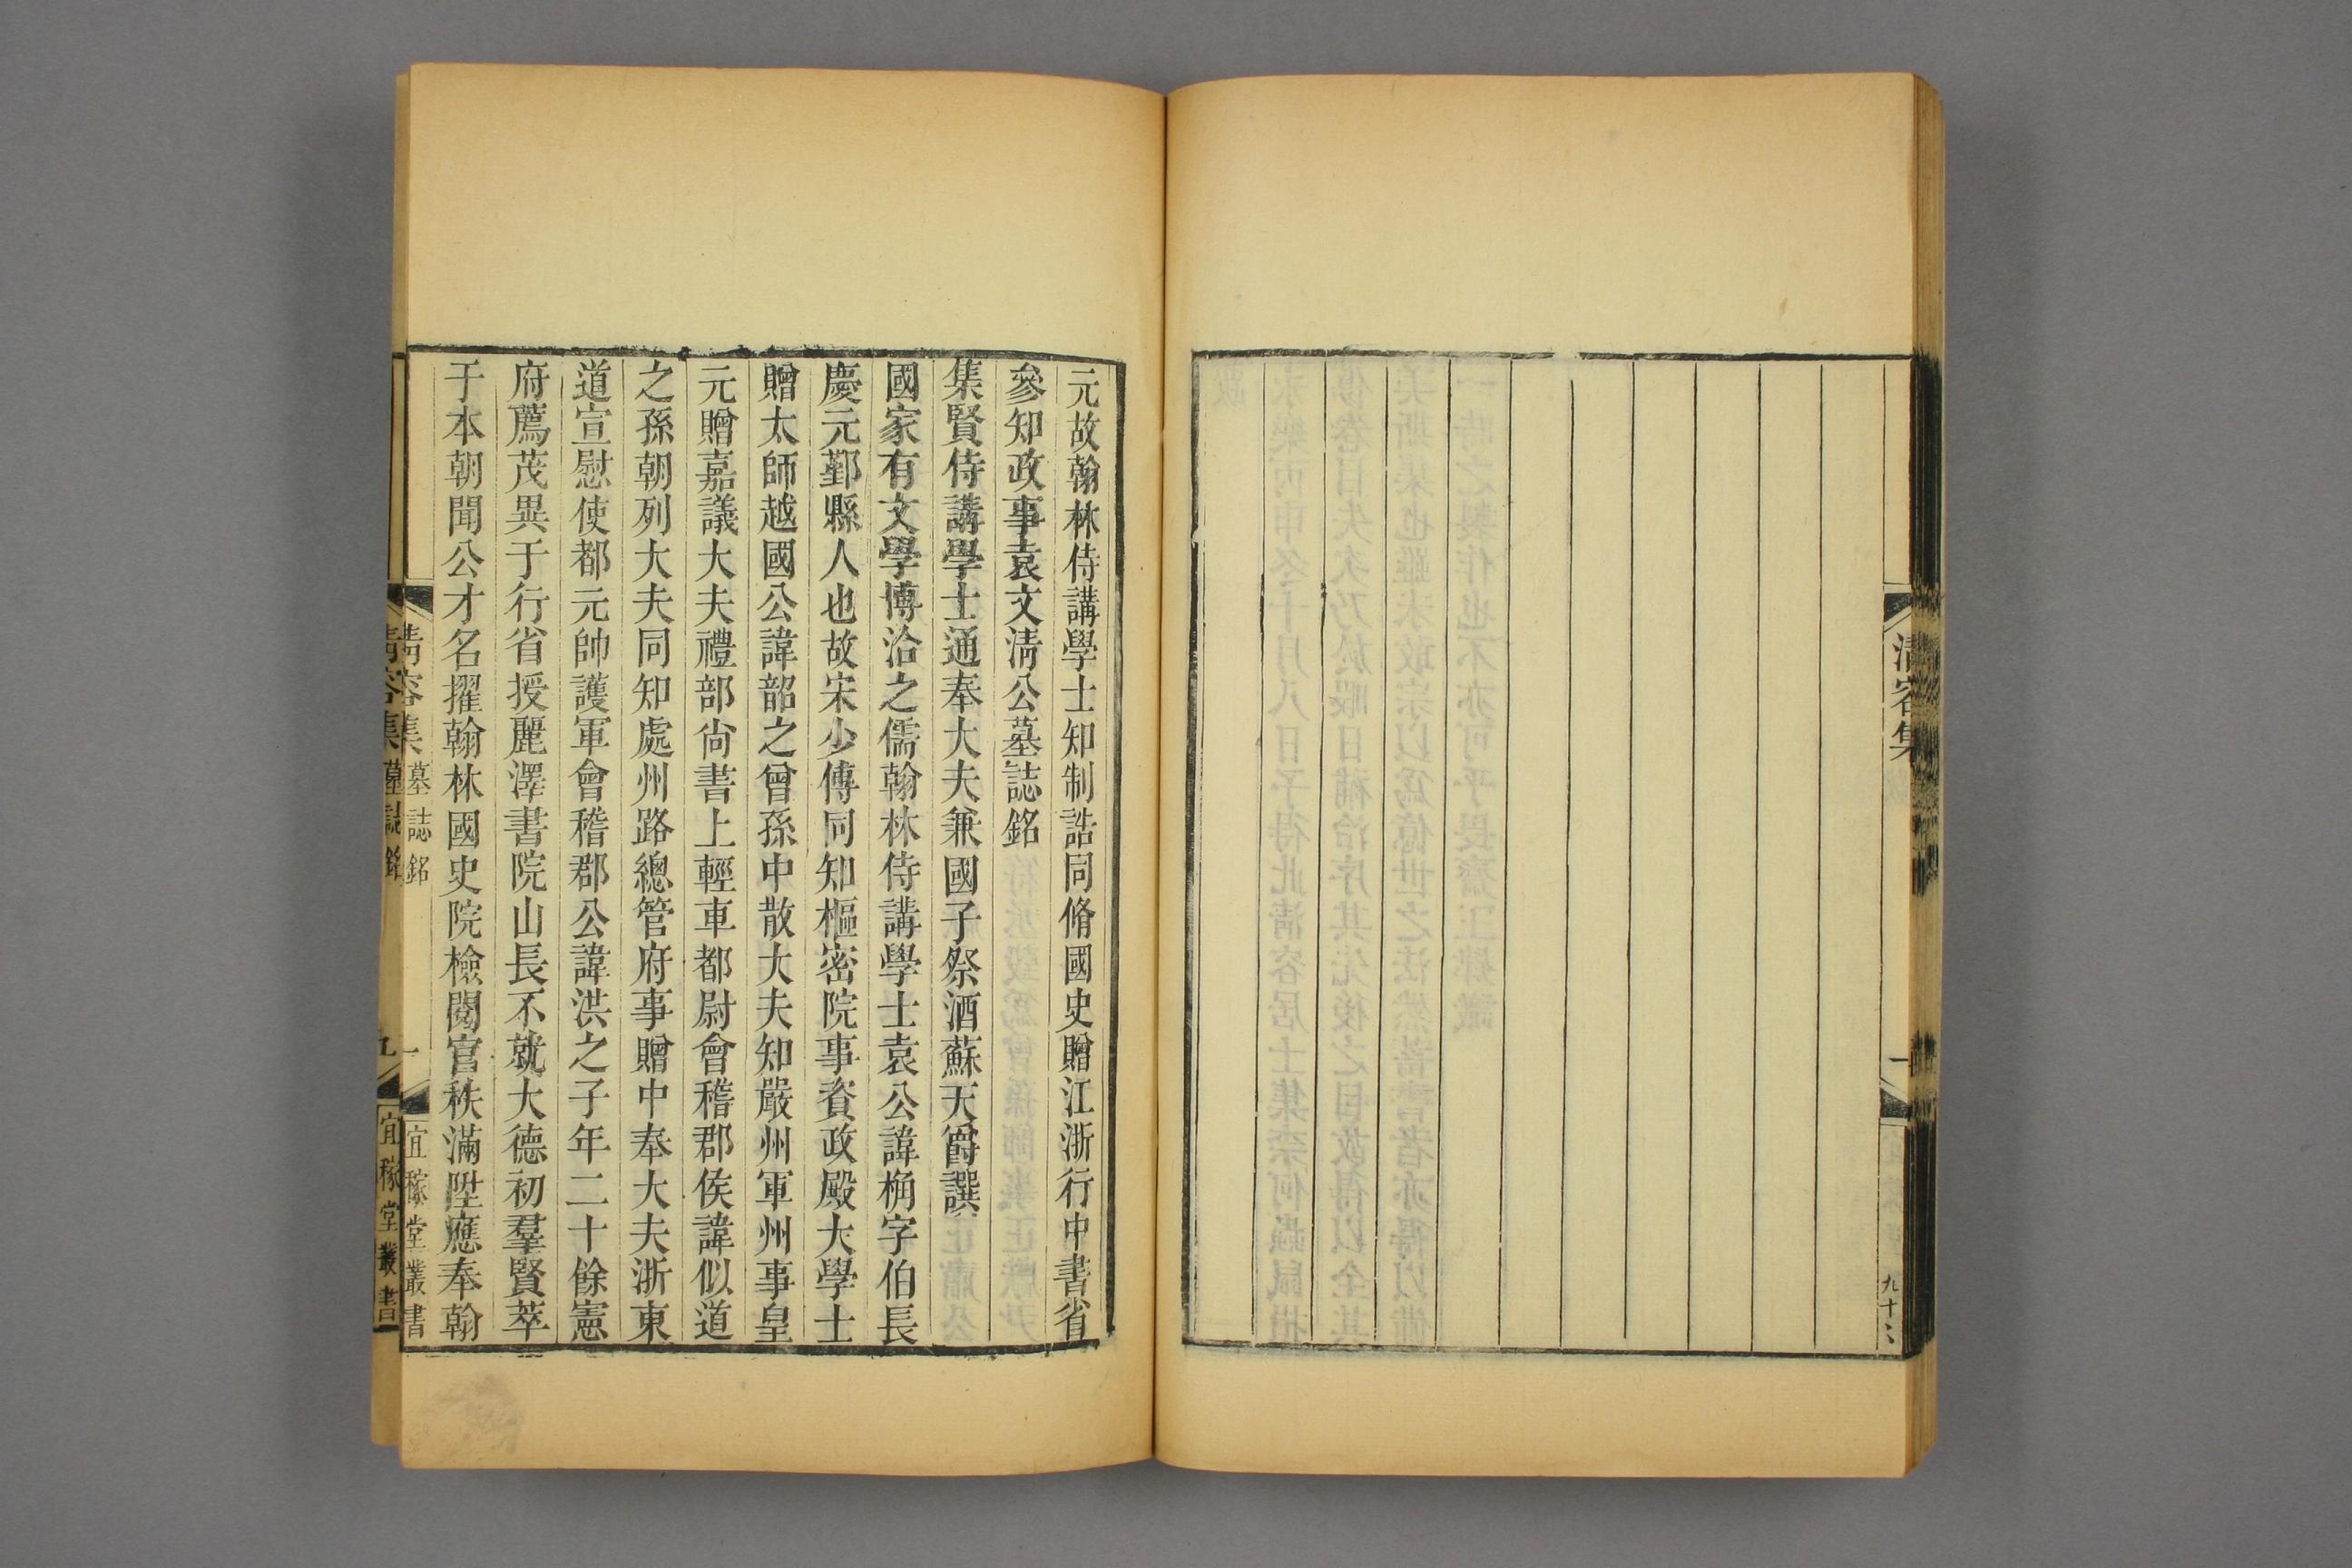 清容集
一
九十六
元故翰林侍講學士知制誥同脩國史贈江浙行中書省
參知政事袁文清公墓誌銘
集賢侍講學士通奉大夫兼國子祭酒蘇天爵譔
國家有文學博洽之儒翰林侍講學士袁公諱桷字伯長
慶元鄞縣人也故宋少傅同知樞密院事資政殿大學士
贈太師越國公諱韶之曾孫中散大夫知嚴州軍州事皇
元贈嘉議大夫禮部尚書上輕車都尉會稽郡侯諱似道
之孫朝列大夫同知處州路總管府事贈中奉大夫浙東
道宣慰使都元帥護軍會稽郡公諱洪之子年二十餘憲
府薦茂異于行省授麗澤書院山長不就大德初羣賢萃
于本朝聞公才名擢翰林國史院檢閱官秩滿陞應奉翰
清容集 墓誌銘 一 宜稼堂叢書
清容集 墓誌銘 九 宜稼堂叢書